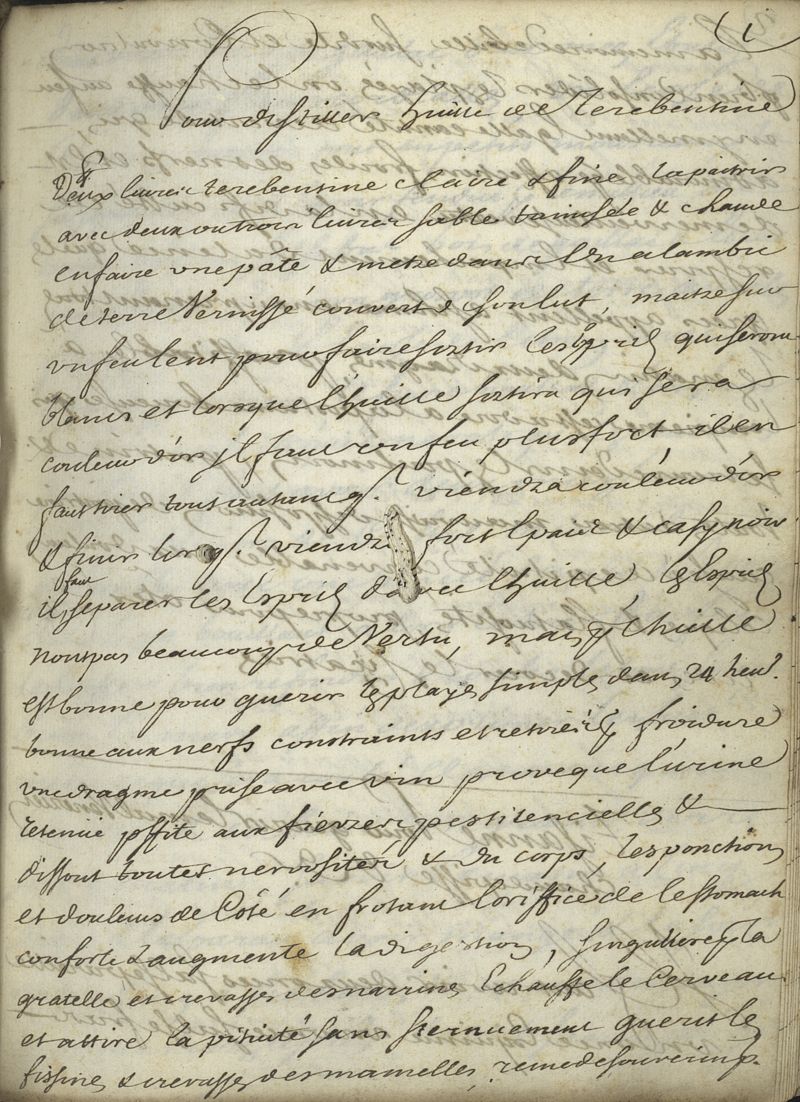 1
Pour distiller huille de Terebentine
Deux livres terebentine claire & fine la paitrir
avec deux ou trois livres sable tamisée & chaude
en faire une pâte & metre dans un alambic
de terre Vernissé couvert & son lut, maitre sur
un feu lent pour faire sortir les Esprits qui seront
blancs et lorsque l'huille sortira qui sera
couleur d'or il faut un feu plus fort il en
faut tirer tout autant q. viendra couleur d'or
& finir lors q. viendra fort épais & casy noir
il faut separer les Esprits davec l'huille, les Esprits
nont pas beaucoup de Vertu, mais l'huille
est bonne pour guerir les playes simples dans 24 heur.
bonne aux nerfs constraints et retirés froidure
une dragme prise avec vin provoque l'urine
retenüe pffite aux fievres pestilencielles &
dissout toutes nervosités & du corps, les ponctions
et douleurs de Côté en frotant l'oriffice de lestomach
conforte & augmente la digestion, singulière la
gratelle et crevasses des narrines Echauffe le Cerveau
et attire la pituité sans sternuement guerit les
fissures & crevasses des mamelles, remede souverain